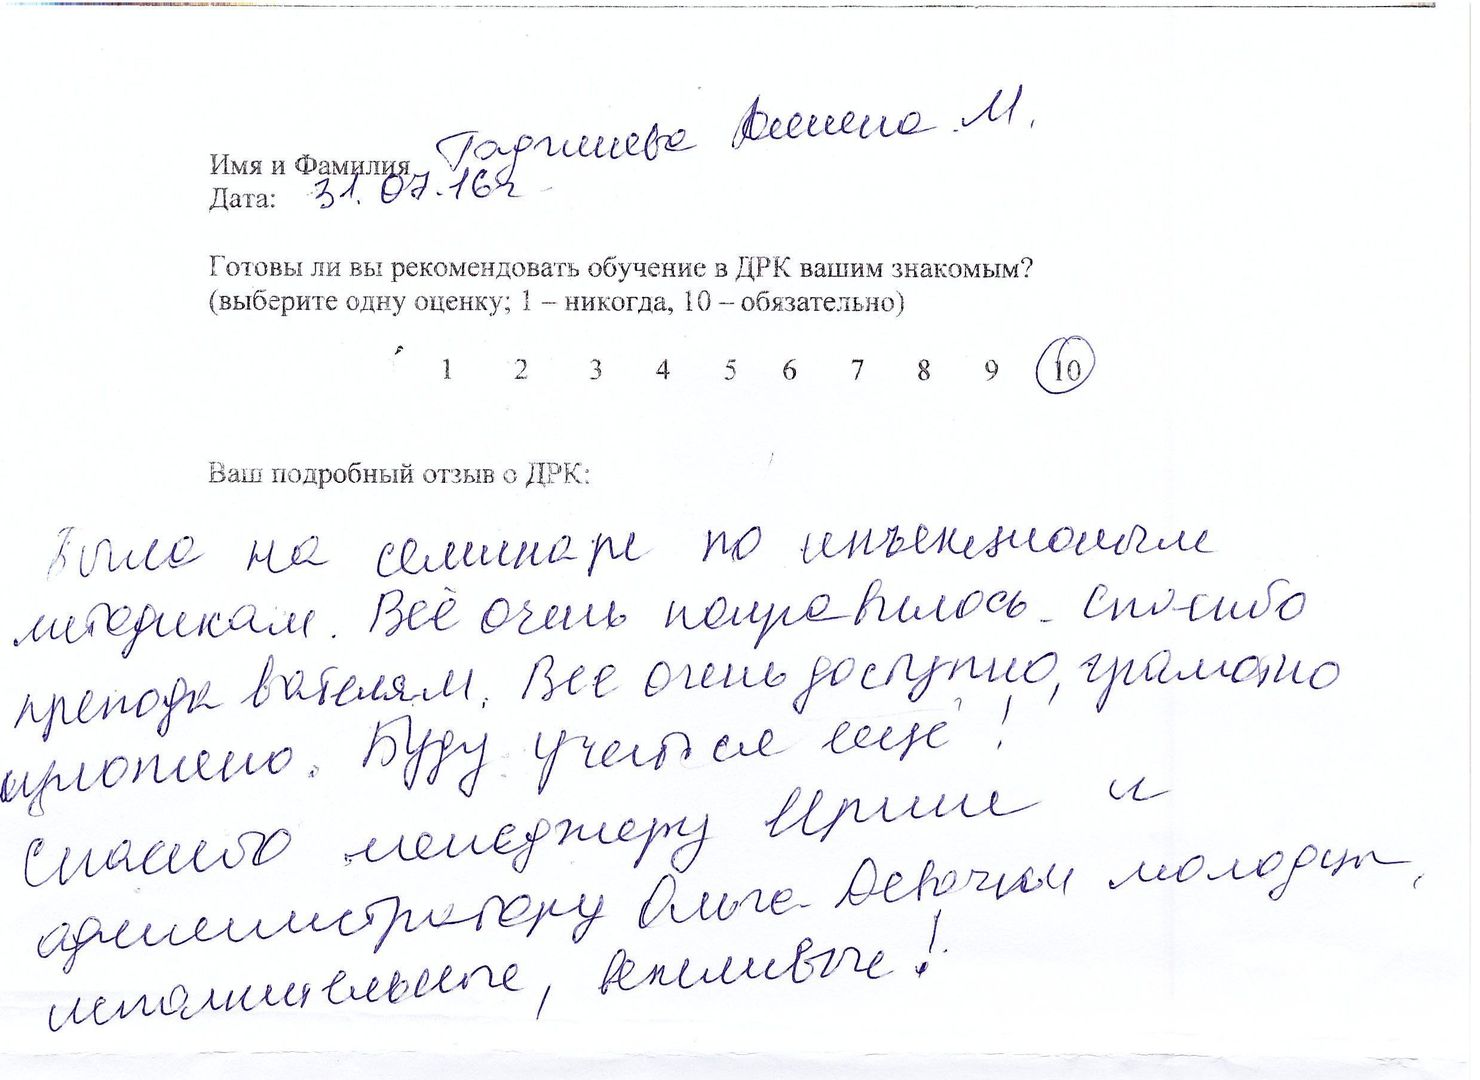 Имя и Фамилия Гаджиева М.
Дата: 31.07.16г
Готовы ли вы рекомендовать обучение в ДРК вашим знакомым?
(выберите одну оценку; 1 – никогда, 10 – обязательно)
1 2 3 4 5 6 7 8 9 10
Ваш подробный отзыв о ДРК:
Была на семинаре по инъекционым
методикам. Всё очень понравилось. Спасибо
преподавателям. Все очень доступно, грамотно
изложено. Буду учиться ещё!
Спасибо менеджеру Ирине и
администратору Ольге. Девочки молодцы,
исполнительные, вежливые!